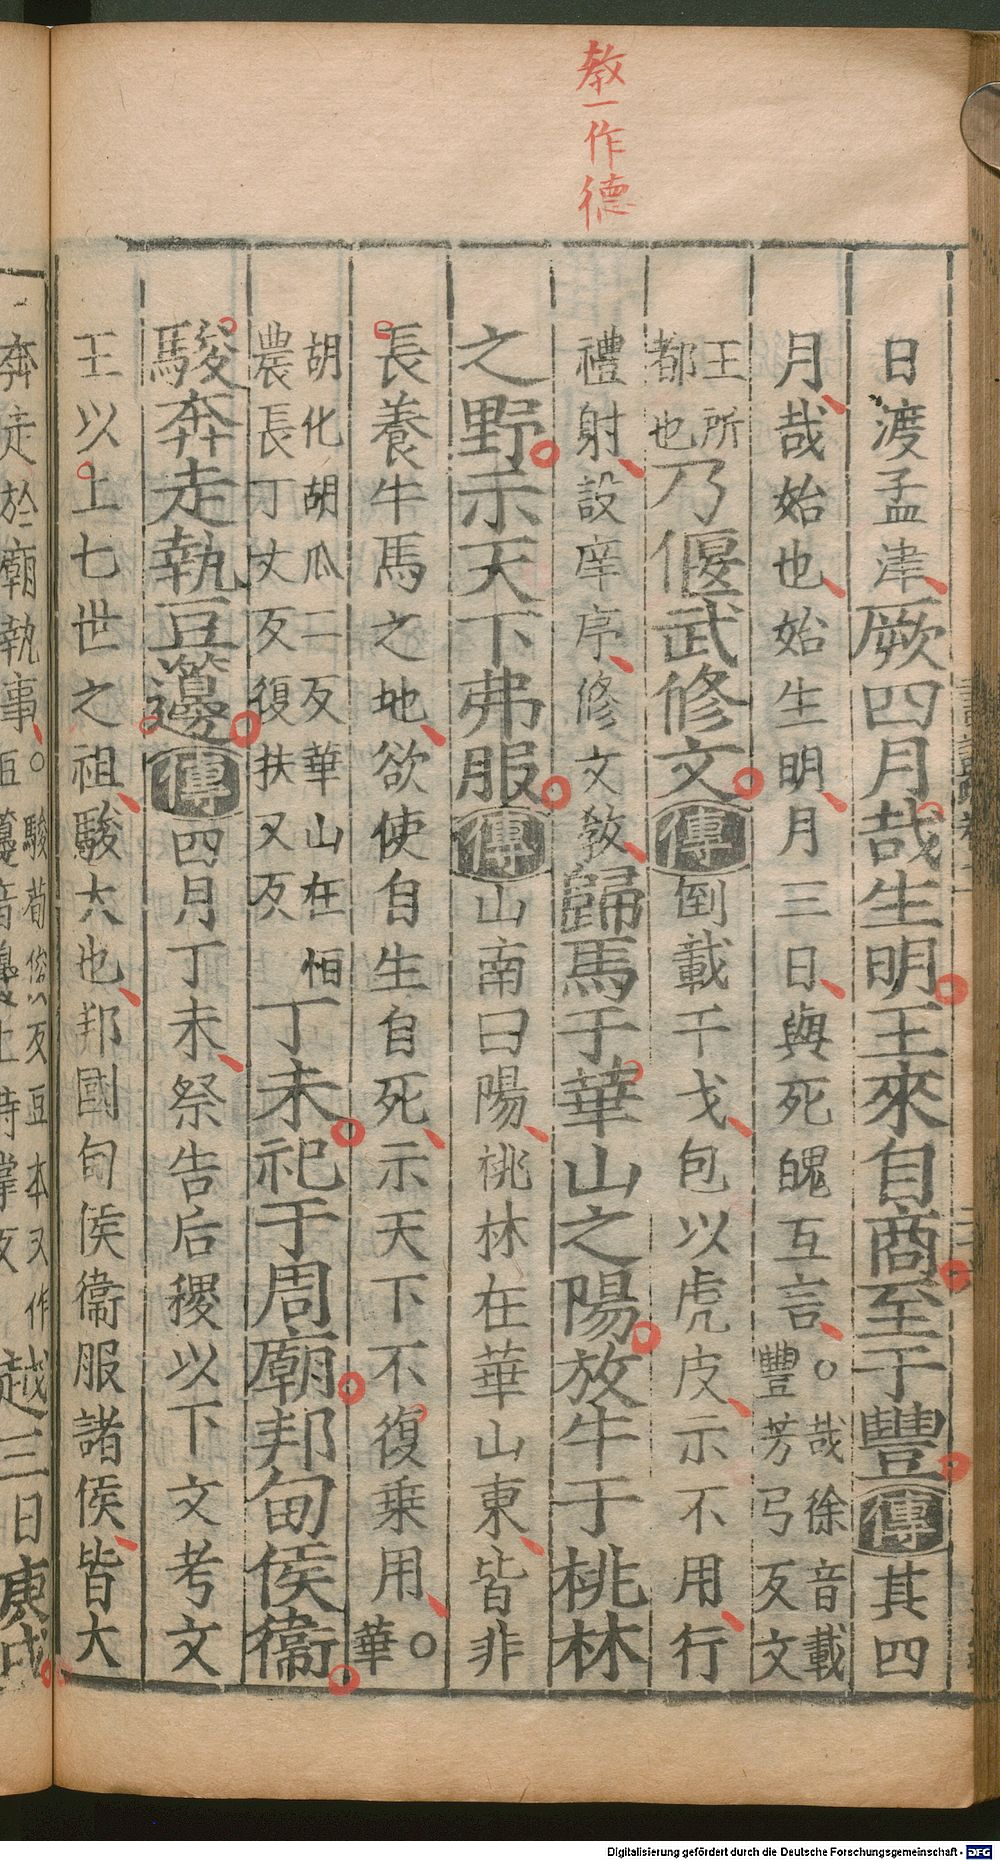 教一作德
日渡孟津厥四月哉生明王來自商至于豐傳其四
月哉始也始生明月三日與死魄互言○哉徐音載豐芳弓反文
王所都也乃偃武修文傳倒載干戈包以虎皮示不用行
禮射設庠序修文教歸馬于華山之陽放牛于桃林
之野示天下弗服傳山南曰陽桃林在華山東皆非
長養牛馬之地欲使自生自死示天下不復乗用○華
胡化胡瓜二反華山在恒農長丁丈反復扶又反丁未祀于周廟邦甸侯衞
駿奔走執豆籩傳四月丁未祭告后稷以下文考文
王以上七世之祖駿大也邦國甸侯衞服諸侯皆大
奔走於廟執事○駿荀俊反豆本又作
越三日庚戌
Digitalisierung gefördert durch die Deutsche Forschungsgemeinschaft - DFG